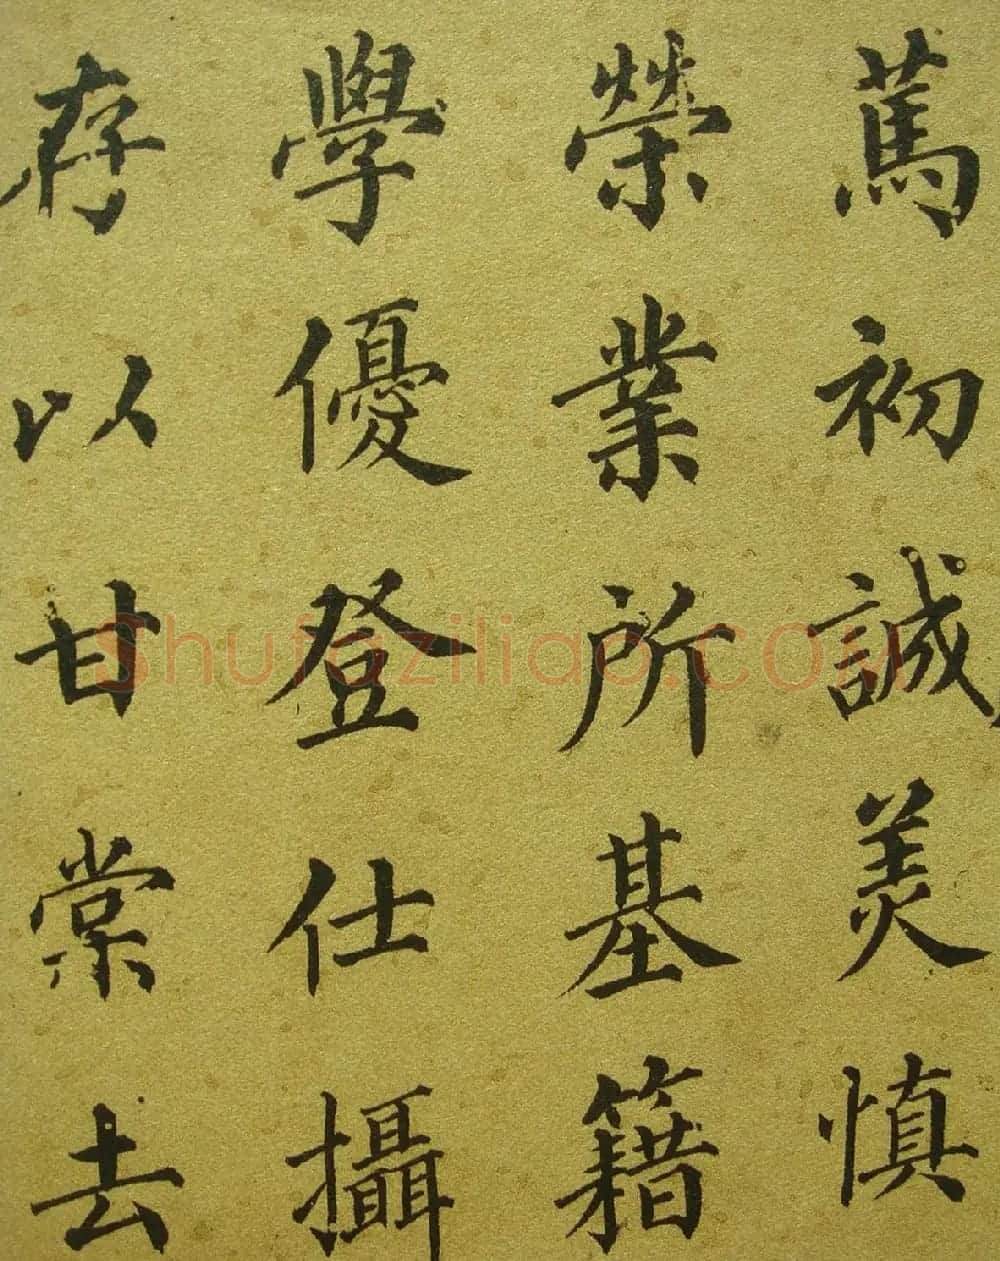 篤初誠美慎
榮業所基籍
學優登仕攝
存以甘棠去
Shufaziliao.COM